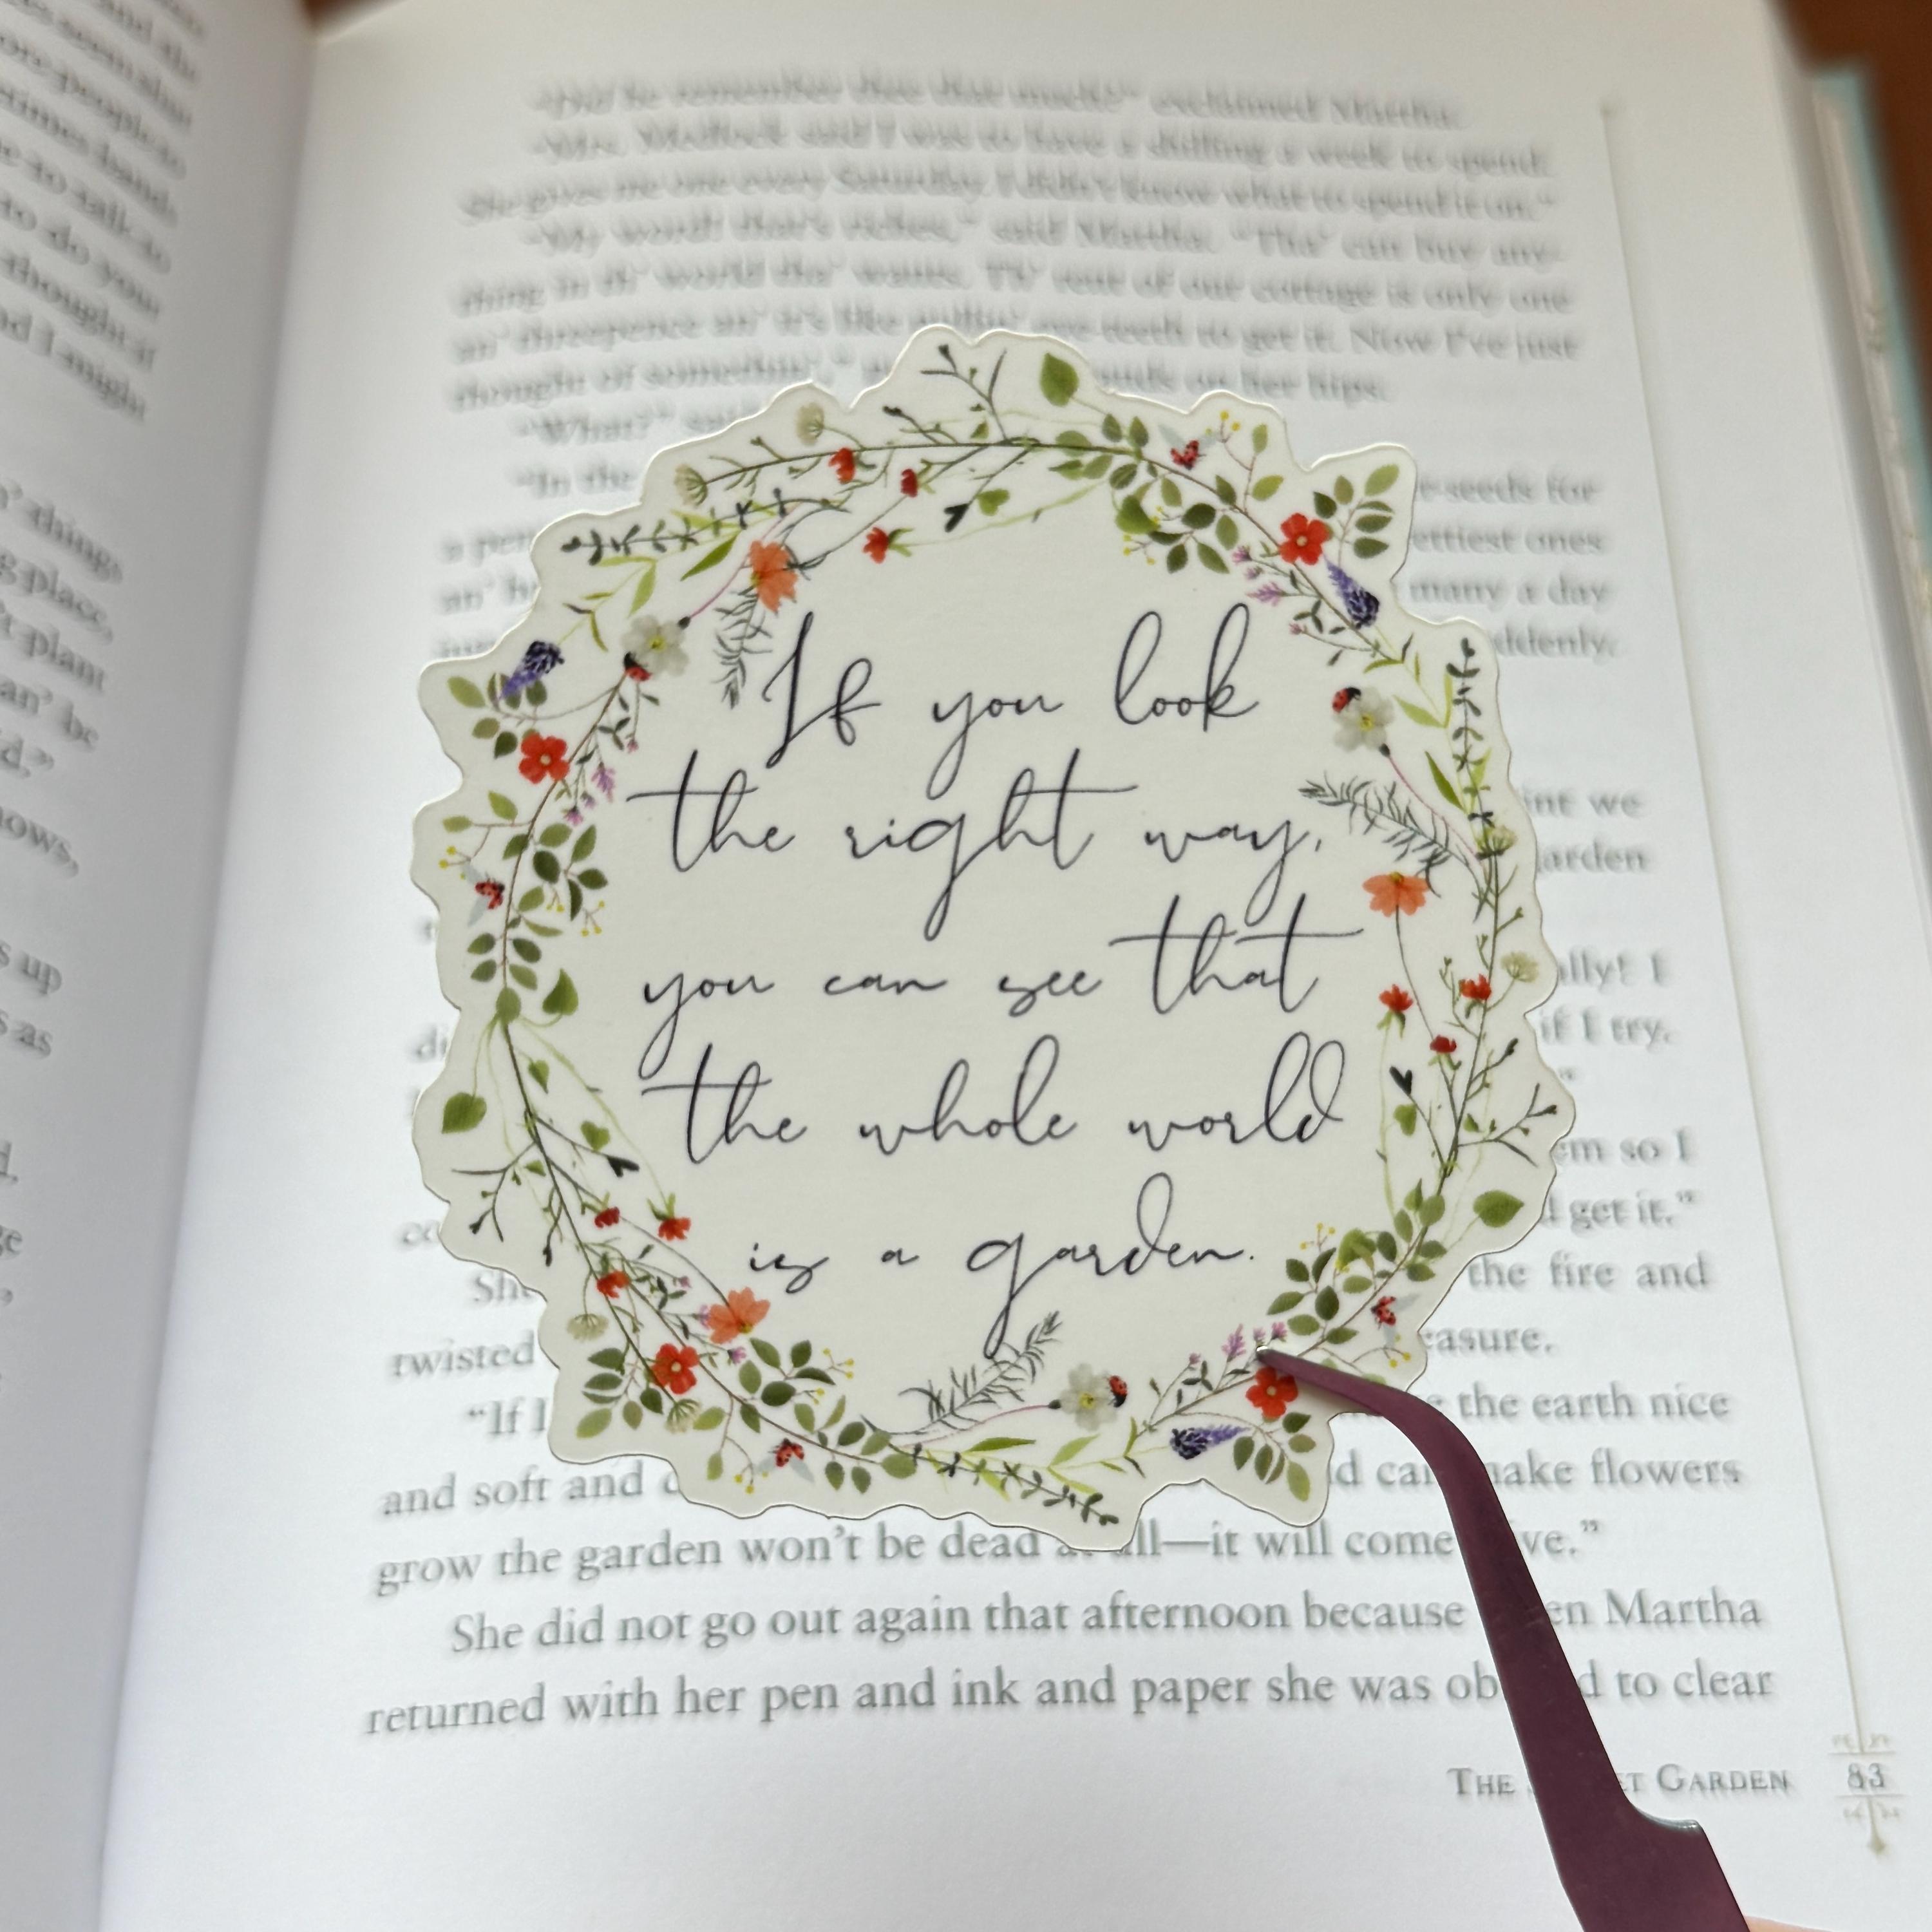 and the
seen shut
ore people to
times hand
e to talk to
to do your
thought it
d I might
n' things
g place,
't plant
an' be
d."
nows,
s up
s as
"Did he remember thee that much?" exclaimed Martha.
"Mrs. Medlock said I was to have a shilling a week to spend.
She gives me one every Saturday. I didn't know what to spend it on."
"My word! that's riches," said Martha. "Tha' can buy any-
thing in th' world tha' wants. Th' rent of our cottage is only one
an' threepence an' it's like pullin' eye-teeth to get it. Now I've just
thought of somethin'," hands on her hips.
"What?"
"In the seeds for
a ettiest ones
an' many a day
ddenly.
int we
arden
ally! I
if I try.
em so I
get it."
She the fire and
twisted easure.
"If I the earth nice
and soft and can make flowers
grow the garden won't be dead at all—it will come ve."
She did not go out again that afternoon because en Martha
returned with her pen and ink and paper she was ob d to clear
THE T GARDEN 83
If you look
the right way,
you can see that
the whole world
is a garden.